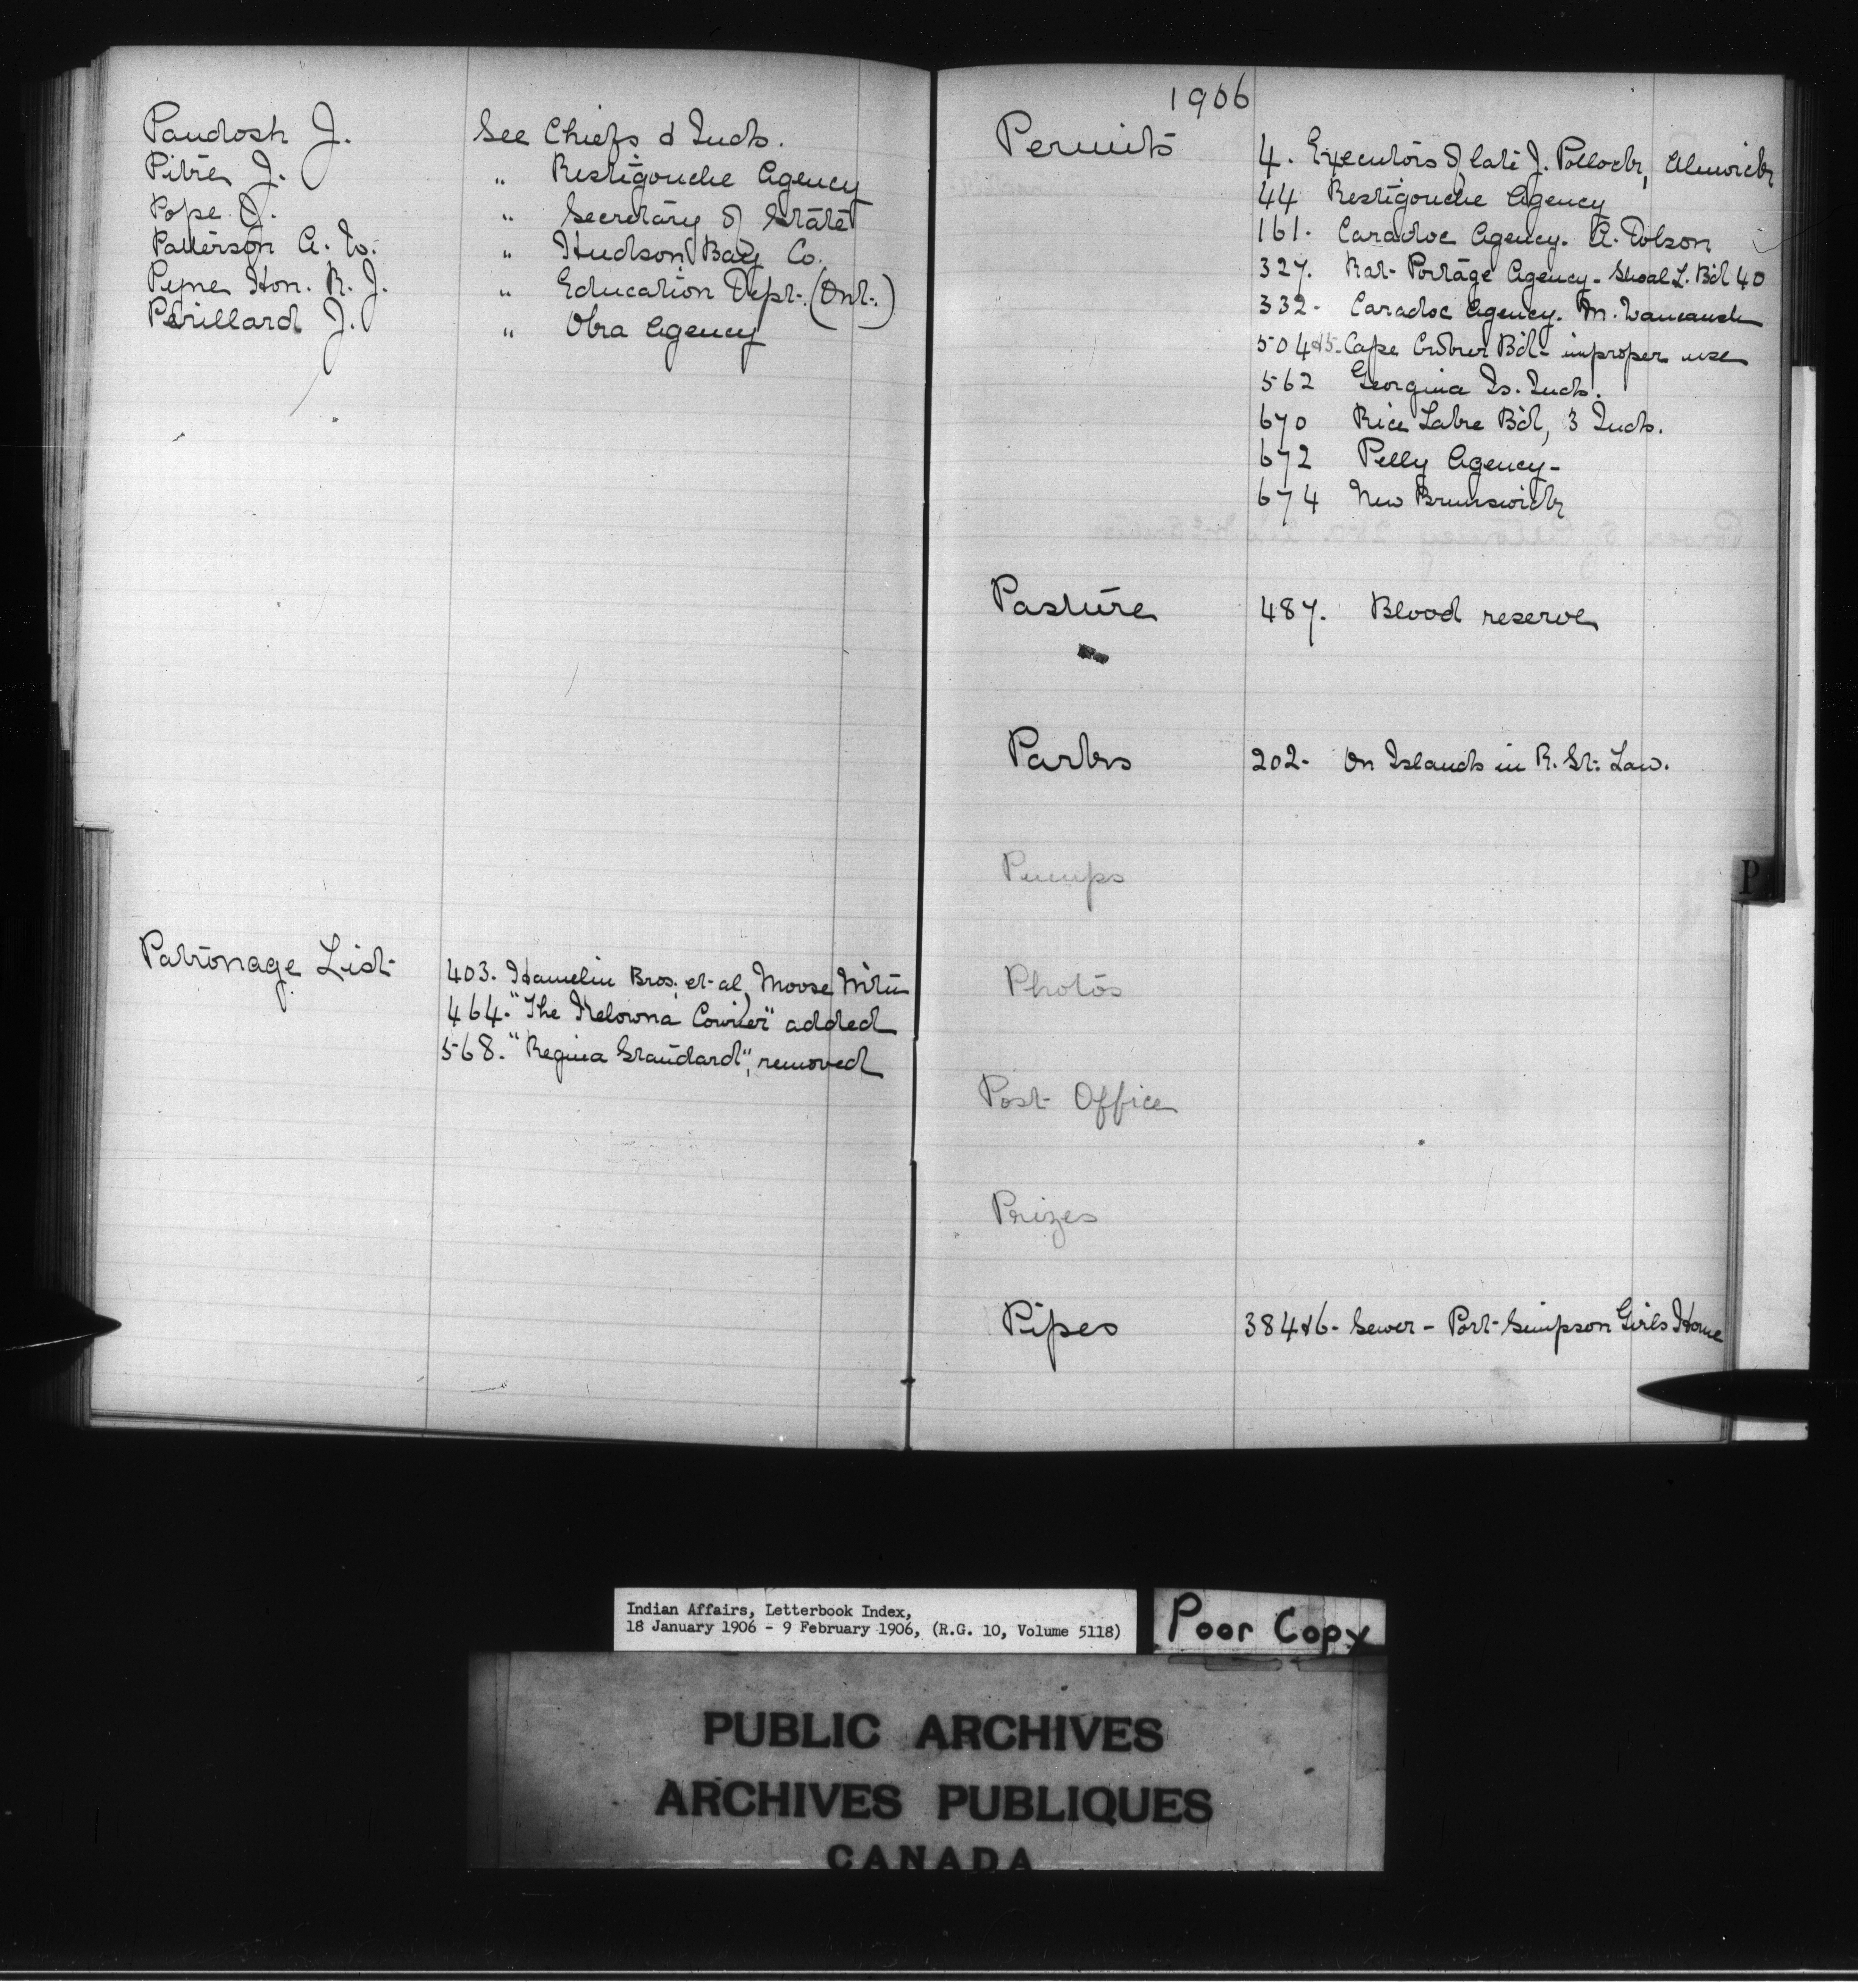 Paudosh J. See Chiefs & Inds.
Pitre J. " Restigouche Agency
Pope J. " Secretary of State
Patterson A. W. " Hudson Bay Co.
Pyne Hon. R. J. " Education Dept. (Ont.)
Perillard J. " Oka Agency
Patronage List
403. Hamelin Bros. et al Moose Mtn
464. "The Kelowna Courier" added
568. "Regina Standard", removed
1906
Permits
4. Executors of late J. Pollock, Alnwick
44 Restigouche Agency
161. Caradoc Agency. A. Dolson
327. Rat Portage Agency - Shoal L. Bd 40
332. Caradoc Agency. M.
504&5. Cape Croker Bd - improper use
562 Georgina Is. Inds.
670 Rice Lake Bd, 3 Inds.
672 Pelly Agency -
674 New Brunswick
Pasture 487. Blood reserve
Parks 202. On Islands in R. St. Law.
Pumps
P
Photos
Post Office
Prizes
Pipes 384&6 - Sewer - Port Simpson Girls Home
Indian Affairs, Letterbook Index,
18 January 1906 - 9 February 1906, (R.G. 10, Volume 5118)
Poor Copy
PUBLIC ARCHIVES
ARCHIVES PUBLIQUES
CANADA